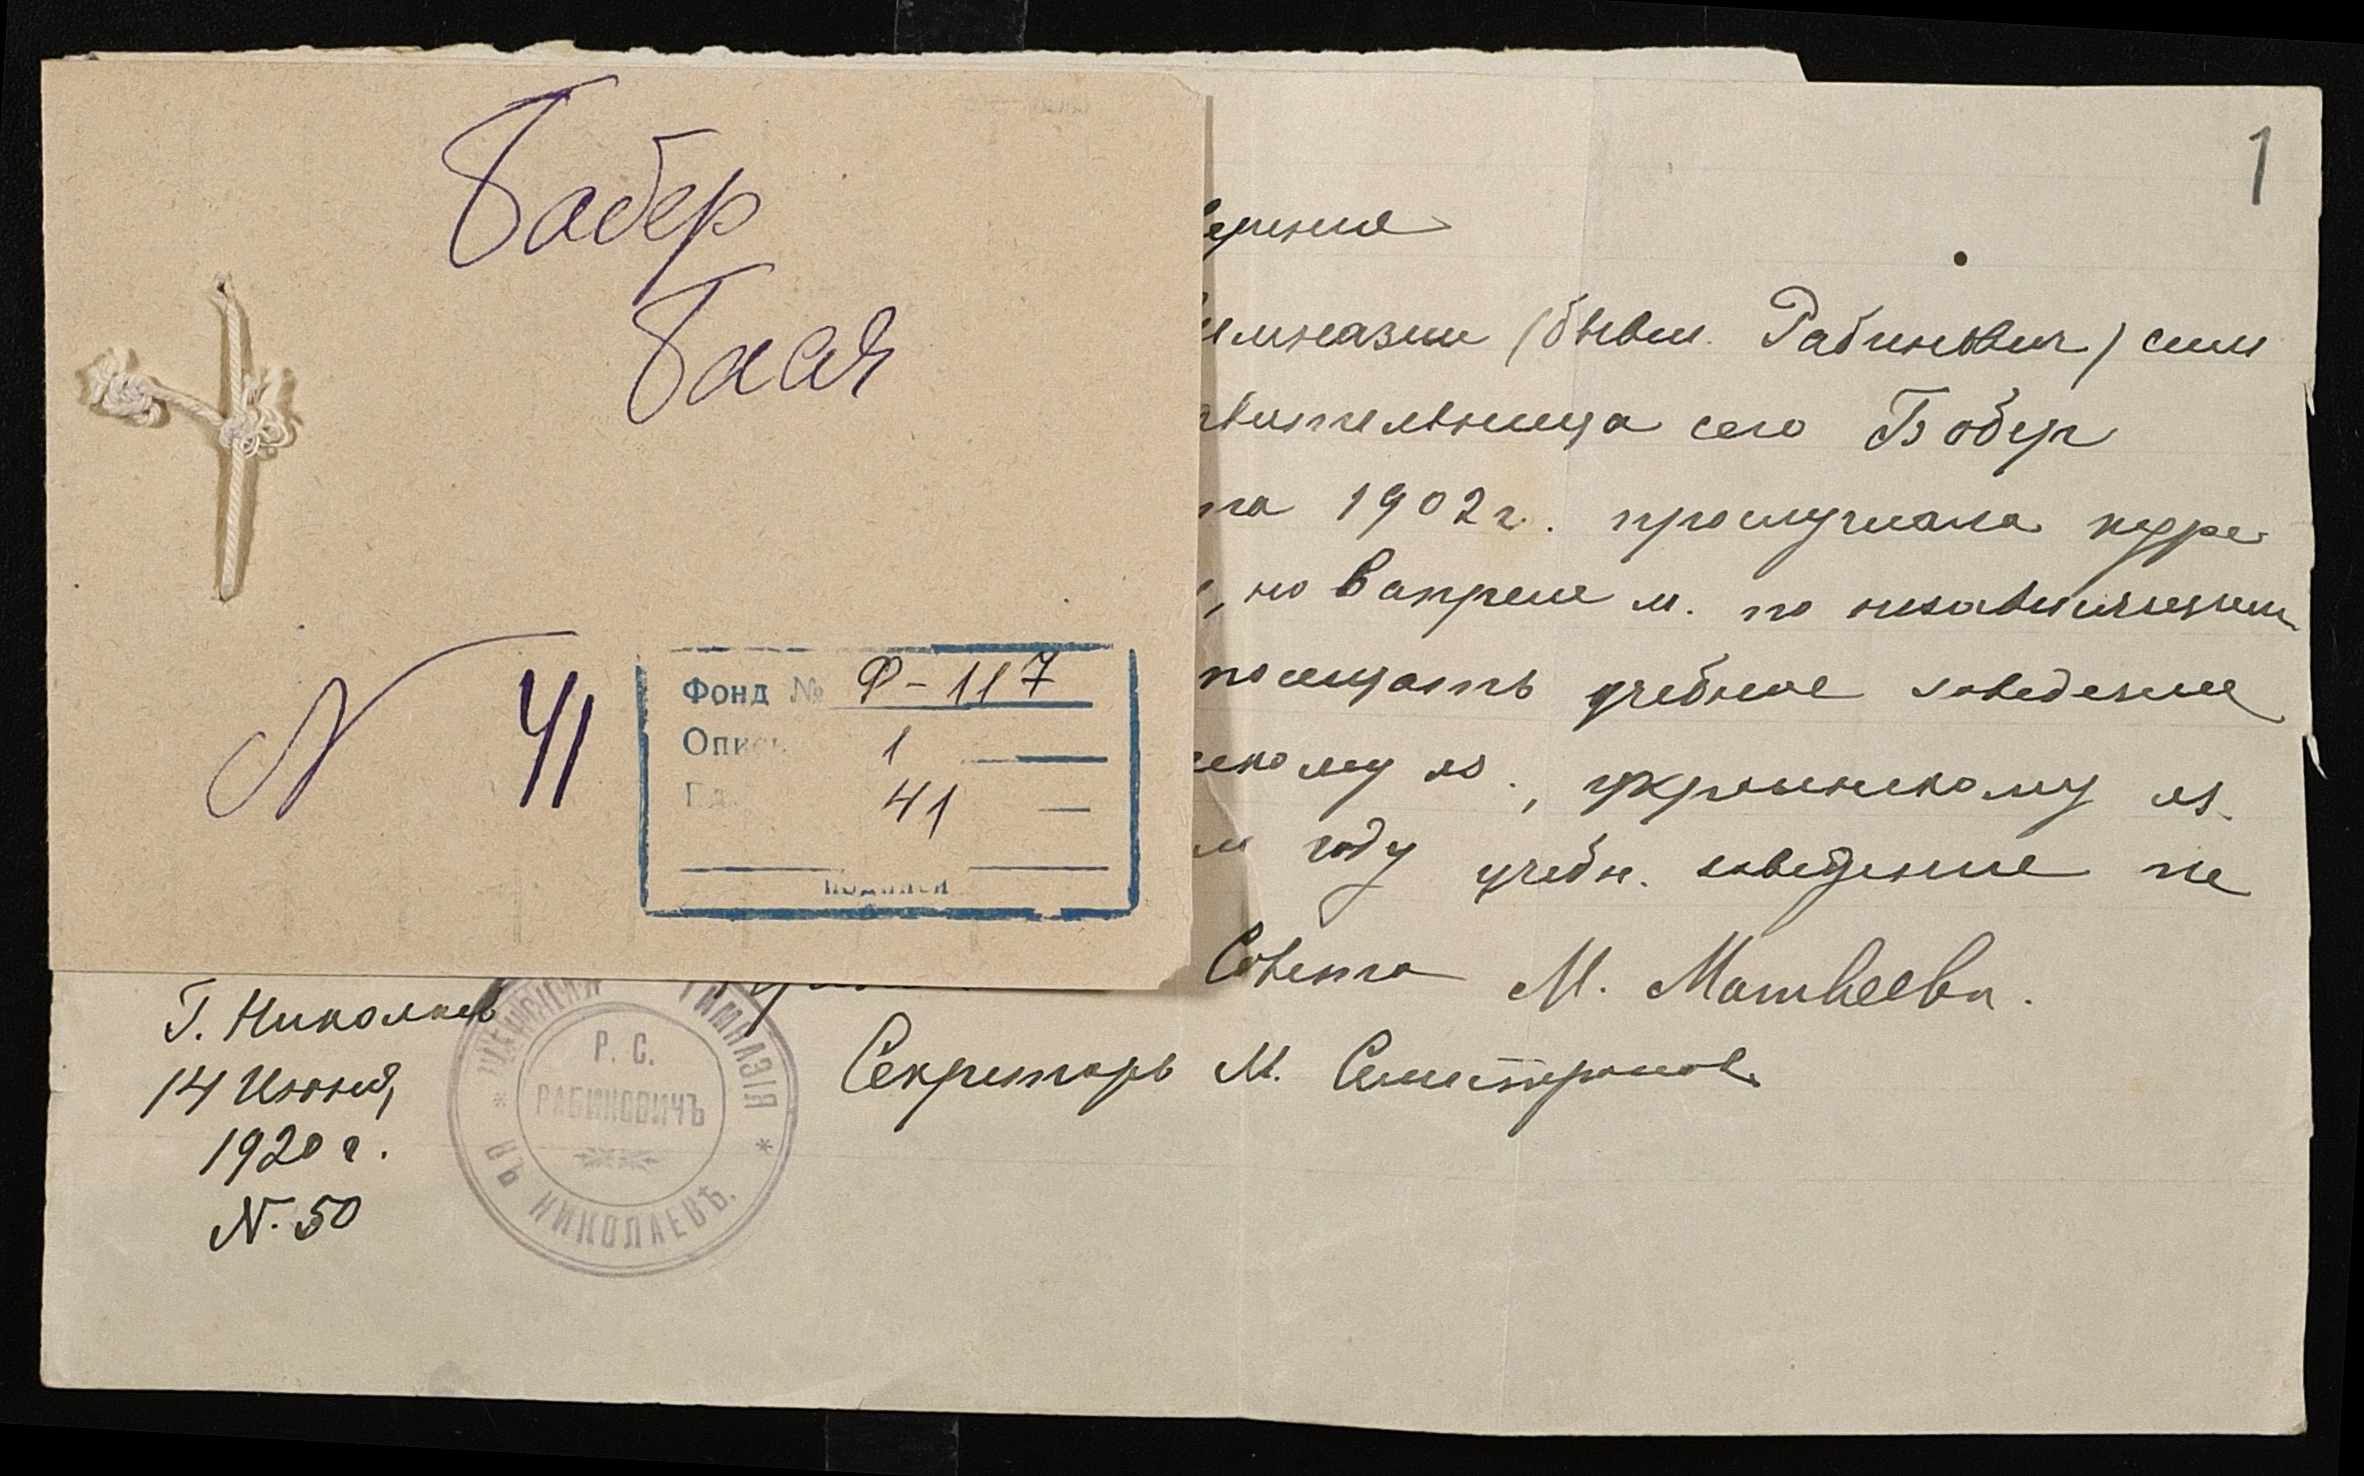 Бабер
Бася
N 41
Фонд № Ф-117
Опись 1
41
подписи
1
гимназии (бывш. Рабинович) сим
вительница сего Бабер
та 1902 г. прослушала курс
, но в апреле м. по независящим
посещать учебное заведение
скому яз., украинскому яз.
м году учебн. заведение не
Совета М. Матвеева.
Секретарь М.
Г. Николаев
14 Июня,
1920 г.
N. 50
ЖЕНСКАЯ ГИМНАЗІЯ
Р. С.
РАБИНОВИЧЪ
ВЪ НИКОЛАЕВѢ.